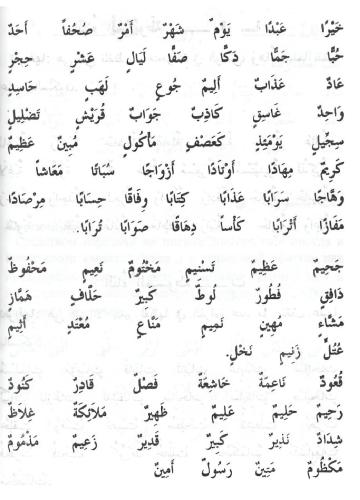 خَيْرًا عَبْدًا يَوْمٌ شَهْرٌ أَمْرٌ صُحُفًا أَحَدٌ
حُبًّا جَمًّا دَكًّا صَفًّا لَيَالٍ عَشْرٍ حِجْرٍ
عَادٌ عَذَابٌ أَلِيمٌ جُوعٍ لَهَبٍ حَاسِدٍ
وَاحِدٌ غَاسِقٍ كَاذِبٌ جَوَابٌ قُرَيْشٍ تَضْلِيلٍ
سِجِّيلٍ يَوْمَئِذٍ كَعَصْفٍ مَأْكُولٍ مُبِينٌ عَظِيمٌ
كَرِيمٌ مِهَادًا أَوْتَادًا أَزْوَاجًا سُبَاتًا مَعَاشًا
وَهَّاجًا سَرَابًا عَذَابًا كِتَابًا وِفَاقًا حِسَابًا مِرْصَادًا
مَفَازًا أَتْرَابًا كَأْسًا دِهَاقًا صَوَابًا تُرَابًا.
جَحِيمٌ عَظِيمٌ تَسْنِيمٍ مَخْتُومٌ نَعِيمٍ مَحْفُوظٌ
دَافِقٍ فُطُورٌ لُوطٌ كَبِيرٌ حَلَّافٍ هَمَّازٍ
مَشَّاءٍ مَهِينٍ نَمِيمٍ مَنَّاعٍ مُعْتَدٍ أَثِيمٍ
عُتُلٍّ زَنِيمٍ نَخْلٍ.
قُعُودٌ نَاعِمَةٌ خَاشِعَةٌ فَصْلٌ قَادِرٌ كَنُودٌ
رَحِيمٌ حَلِيمٌ عَلِيمٌ ظَهِيرٌ مَلَائِكَةٌ غِلَاظٌ
شِدَادٌ نَذِيرٌ كَبِيرٌ قَدِيرٌ زَعِيمٌ مَذْمُومٌ
مَكْظُومٌ مَتِينٌ رَسُولٌ أَمِينٌ